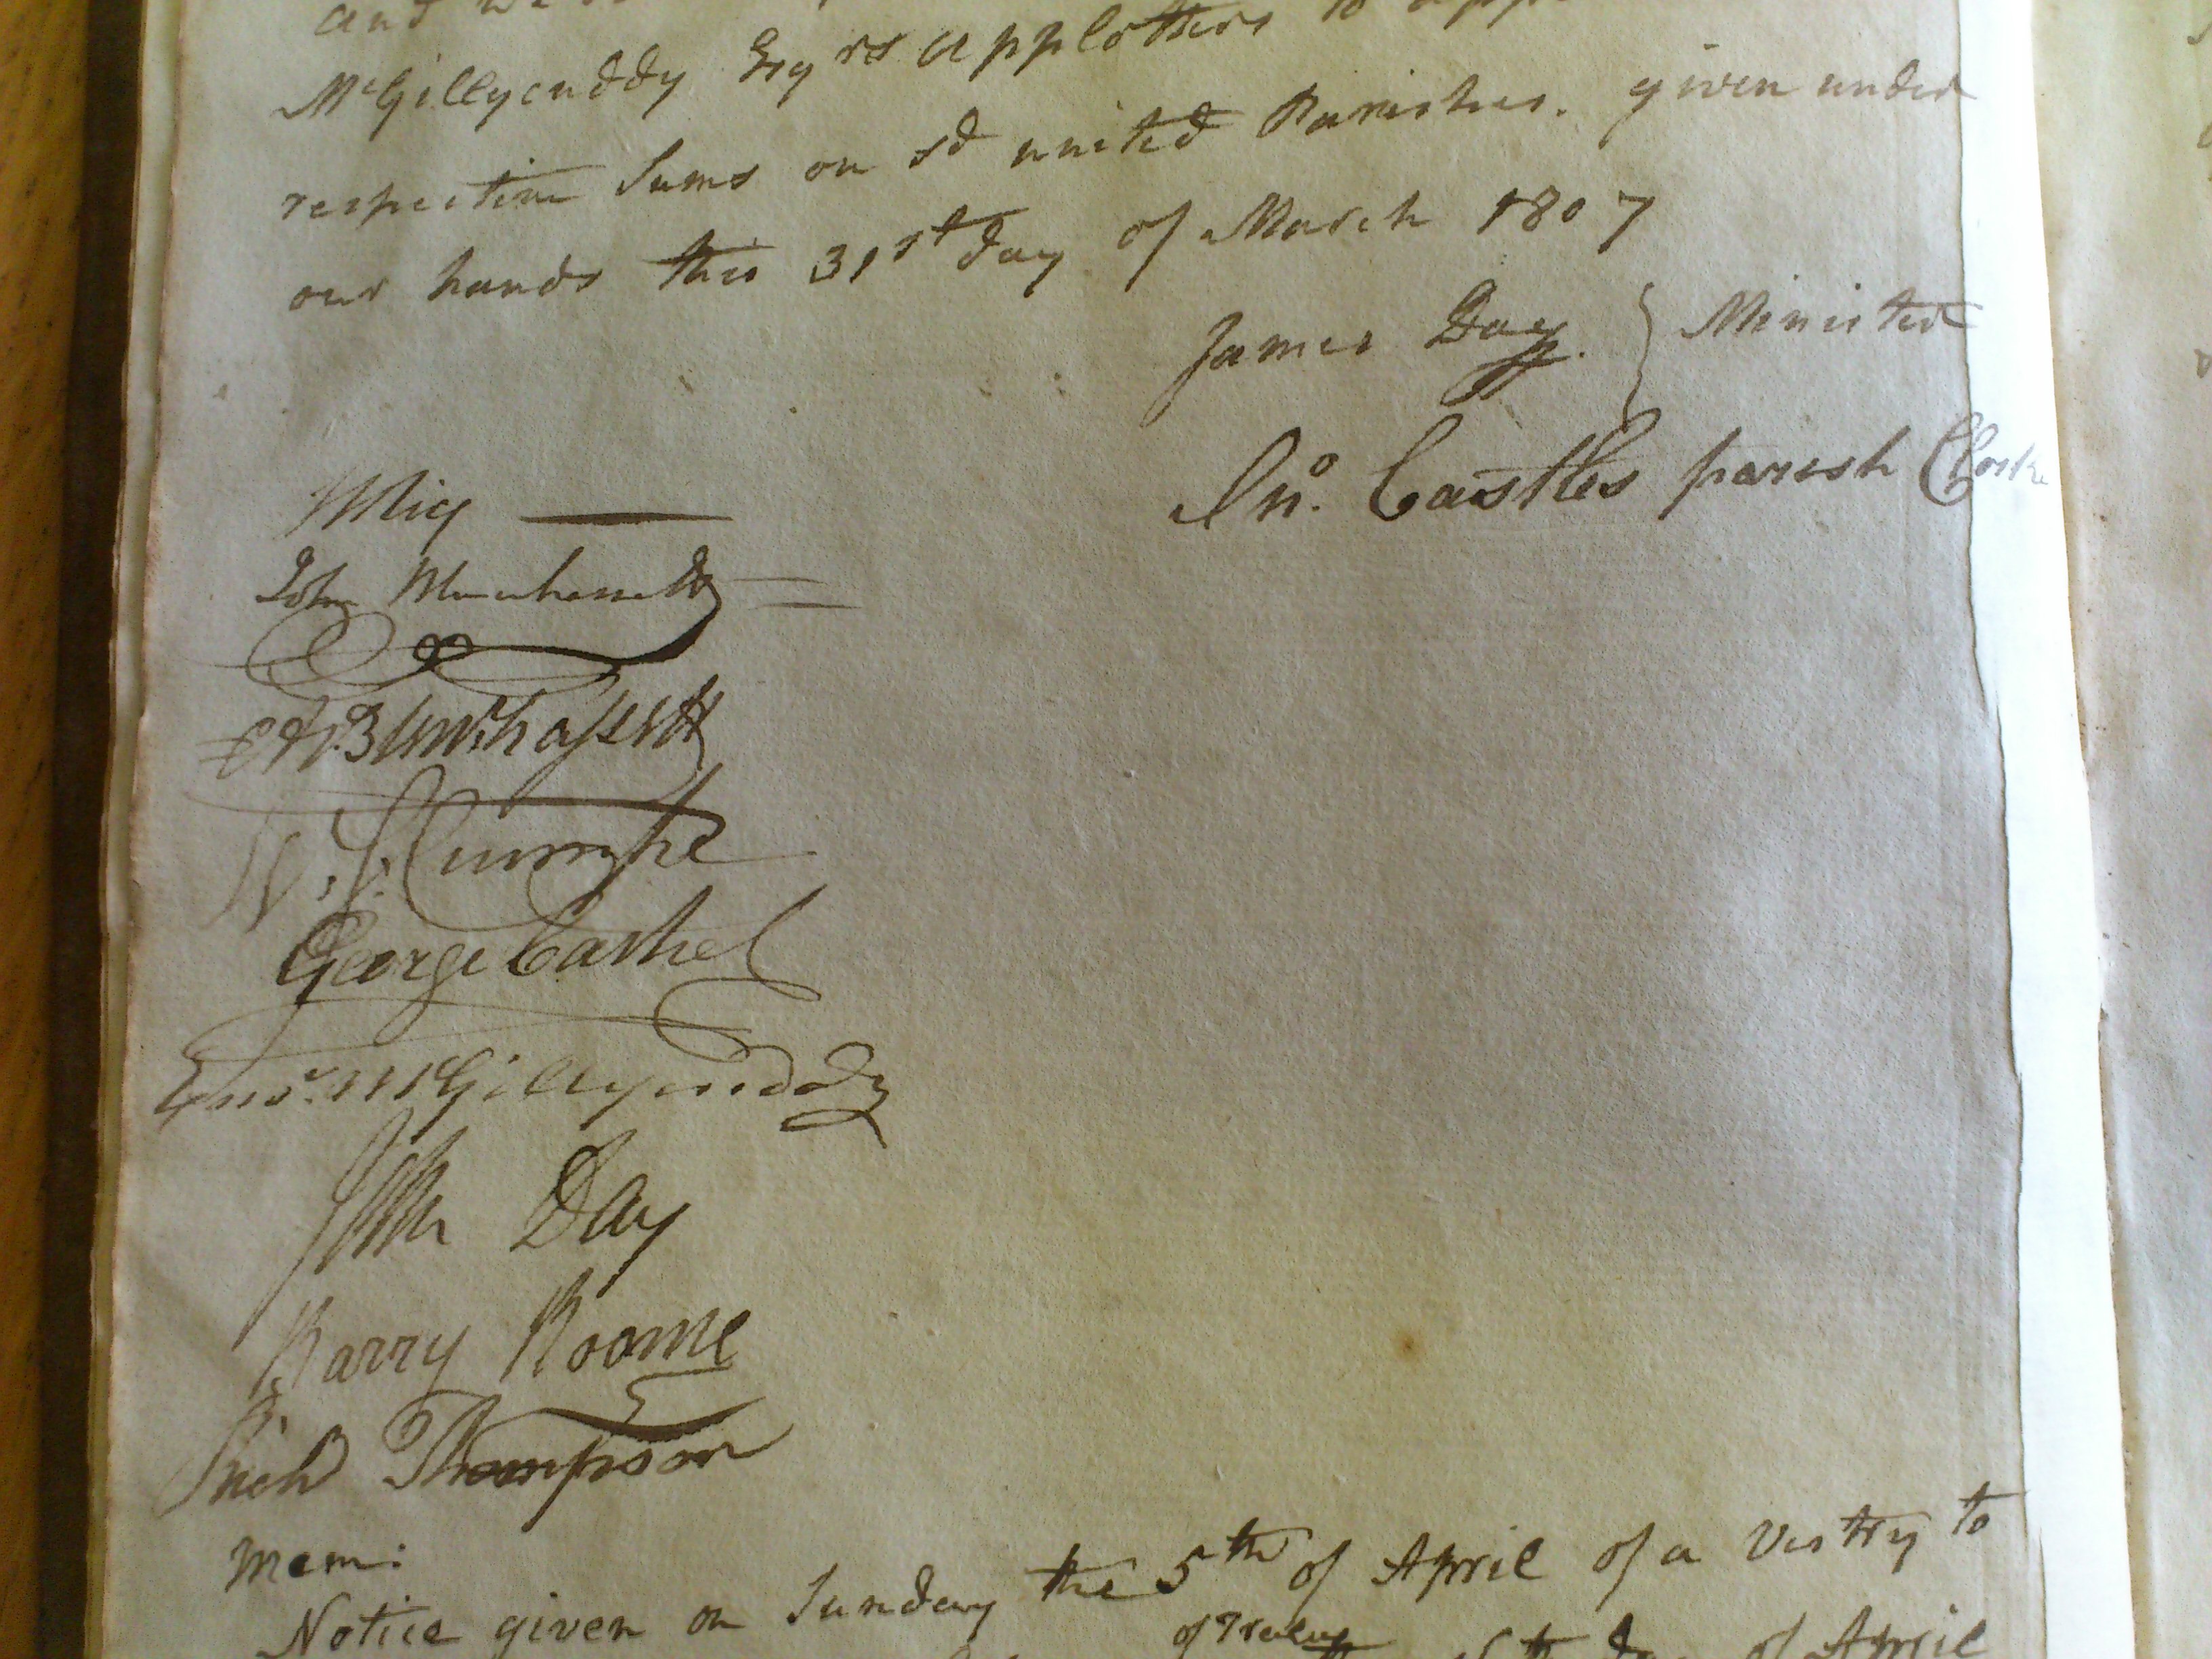 and we
McGillycuddy Esqrs applotters to
respective Sums on sd united Parishes. given under
our hands this 31st day of March 1807
James Day. } Minister
Jno. Castles parish Clerke
John Blennerhassett
Blennerhassett
George Cashel
McGillycuddy
Day
Barry Roome
Richd Thompson
Mem:
Notice given on Sunday the 5th of April of a Vestry to
of Tralee
day of April